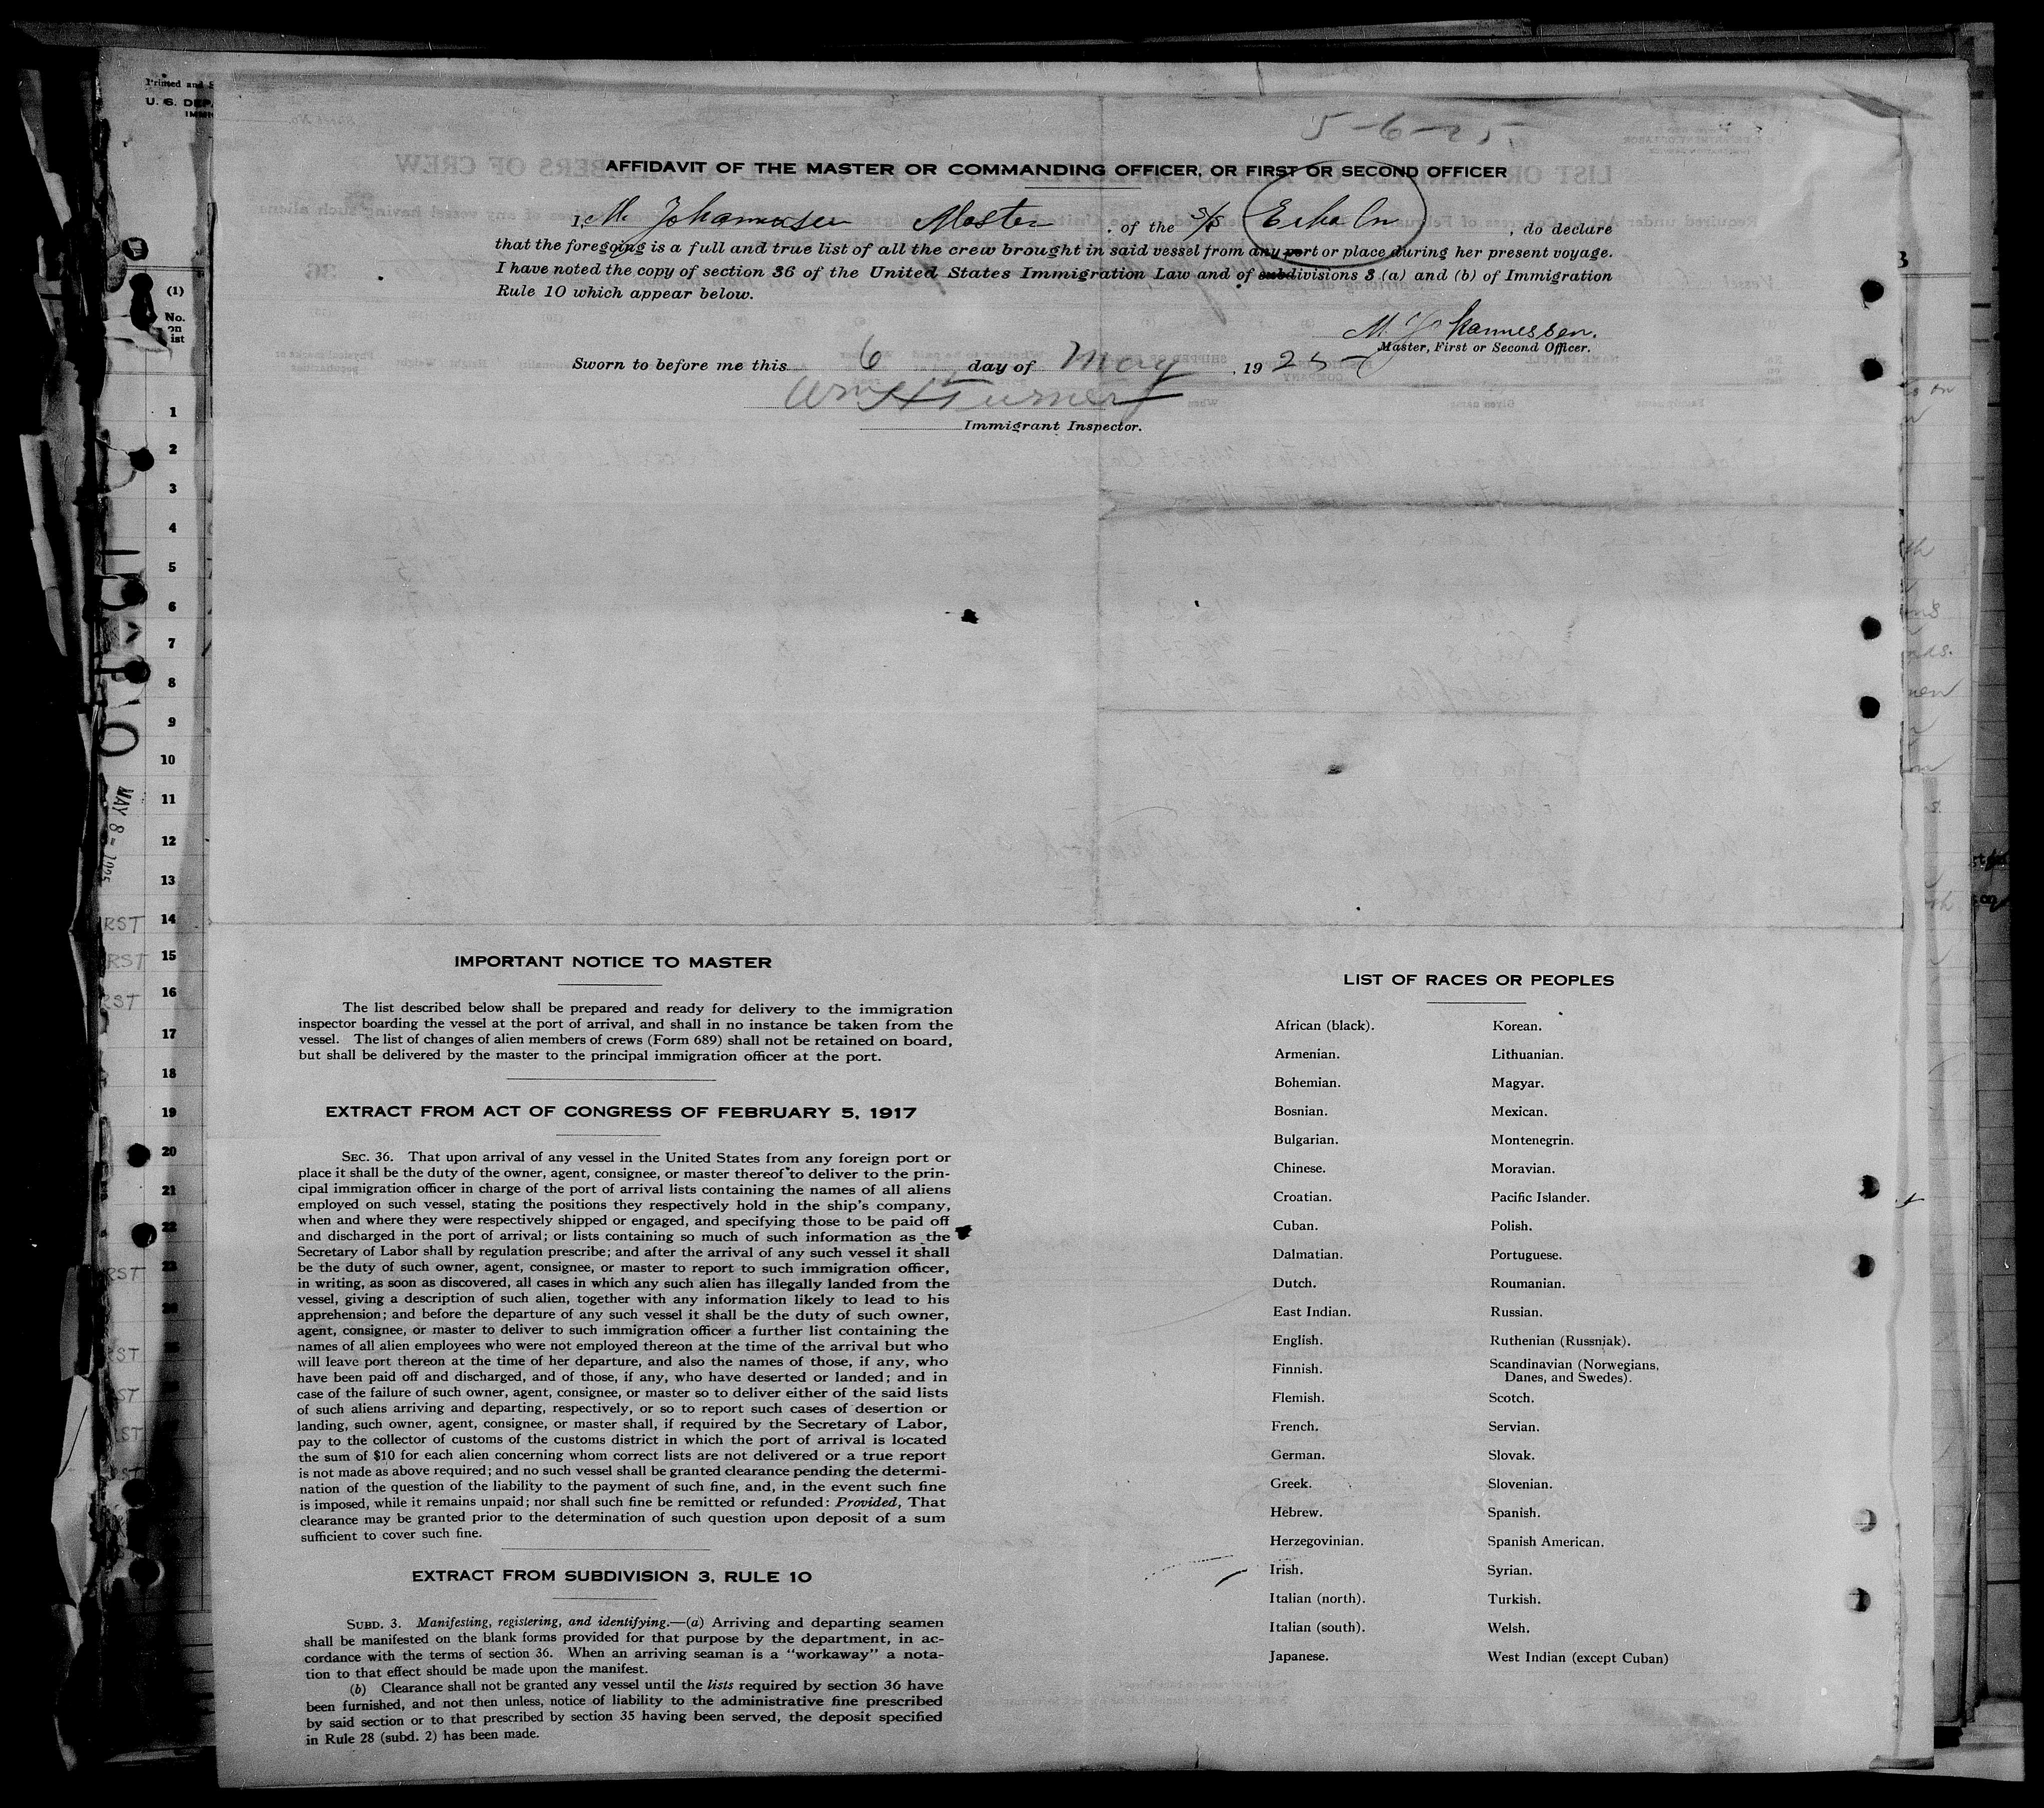 Printed and S
U. S. DEP
IMMI
5-6-25.
AFFIDAVIT OF THE MASTER OR COMMANDING OFFICER, OR FIRST OR SECOND OFFICER
I, M. Johannessen Master, of the S/S, do declare
that the foregoing is a full and true list of all the crew brought in said vessel from any port or place during her present voyage.
I have noted the copy of section 36 of the United States Immigration Law and of subdivisions 3 (a) and (b) of Immigration
Rule 10 which appear below.
M. Johannessen.
Master, First or Second Officer.
Sworn to before me this 6 day of May, 1925
Wm H Turner
Immigrant Inspector.
(1)
No.
on
ist
1
2
3
4
5
6
7
8
9
10
11
12
13
14
15
16
17
18
19
20
21
22
23
24
25
MAY 8 - 1925
RST
RST
RST
RST
RST
ST
ST
ST
IMPORTANT NOTICE TO MASTER
The list described below shall be prepared and ready for delivery to the immigration
inspector boarding the vessel at the port of arrival, and shall in no instance be taken from the
vessel. The list of changes of alien members of crews (Form 689) shall not be retained on board,
but shall be delivered by the master to the principal immigration officer at the port.
EXTRACT FROM ACT OF CONGRESS OF FEBRUARY 5, 1917
SEC. 36. That upon arrival of any vessel in the United States from any foreign port or
place it shall be the duty of the owner, agent, consignee, or master thereof to deliver to the prin-
cipal immigration officer in charge of the port of arrival lists containing the names of all aliens
employed on such vessel, stating the positions they respectively hold in the ship's company,
when and where they were respectively shipped or engaged, and specifying those to be paid off
and discharged in the port of arrival; or lists containing so much of such information as the
Secretary of Labor shall by regulation prescribe; and after the arrival of any such vessel it shall
be the duty of such owner, agent, consignee, or master to report to such immigration officer,
in writing, as soon as discovered, all cases in which any such alien has illegally landed from the
vessel, giving a description of such alien, together with any information likely to lead to his
apprehension; and before the departure of any such vessel it shall be the duty of such owner,
agent, consignee, or master to deliver to such immigration officer a further list containing the
names of all alien employees who were not employed thereon at the time of the arrival but who
will leave port thereon at the time of her departure, and also the names of those, if any, who
have been paid off and discharged, and of those, if any, who have deserted or landed; and in
case of the failure of such owner, agent, consignee, or master so to deliver either of the said lists
of such aliens arriving and departing, respectively, or so to report such cases of desertion or
landing, such owner, agent, consignee, or master shall, if required by the Secretary of Labor,
pay to the collector of customs of the customs district in which the port of arrival is located
the sum of $10 for each alien concerning whom correct lists are not delivered or a true report
is not made as above required; and no such vessel shall be granted clearance pending the determi-
nation of the question of the liability to the payment of such fine, and, in the event such fine
is imposed, while it remains unpaid; nor shall such fine be remitted or refunded: Provided, That
clearance may be granted prior to the determination of such question upon deposit of a sum
sufficient to cover such fine.
EXTRACT FROM SUBDIVISION 3, RULE 10
SUBD. 3. Manifesting, registering, and identifying.—(a) Arriving and departing seamen
shall be manifested on the blank forms provided for that purpose by the department, in ac-
cordance with the terms of section 36. When an arriving seaman is a "workaway" a nota-
tion to that effect should be made upon the manifest.
(b) Clearance shall not be granted any vessel until the lists required by section 36 have
been furnished, and not then unless, notice of liability to the administrative fine prescribed
by said section or to that prescribed by section 35 having been served, the deposit specified
in Rule 28 (subd. 2) has been made.
LIST OF RACES OR PEOPLES
African (black). Korean.
Armenian. Lithuanian.
Bohemian. Magyar.
Bosnian. Mexican.
Bulgarian. Montenegrin.
Chinese. Moravian.
Croatian. Pacific Islander.
Cuban. Polish.
Dalmatian. Portuguese.
Dutch. Roumanian.
East Indian. Russian.
English. Ruthenian (Russniak).
Finnish. Scandinavian (Norwegians,
Danes, and Swedes).
Flemish. Scotch.
French. Servian.
German. Slovak.
Greek. Slovenian.
Hebrew. Spanish.
Herzegovinian. Spanish American.
Irish. Syrian.
Italian (north). Turkish.
Italian (south). Welsh.
Japanese. West Indian (except Cuban)